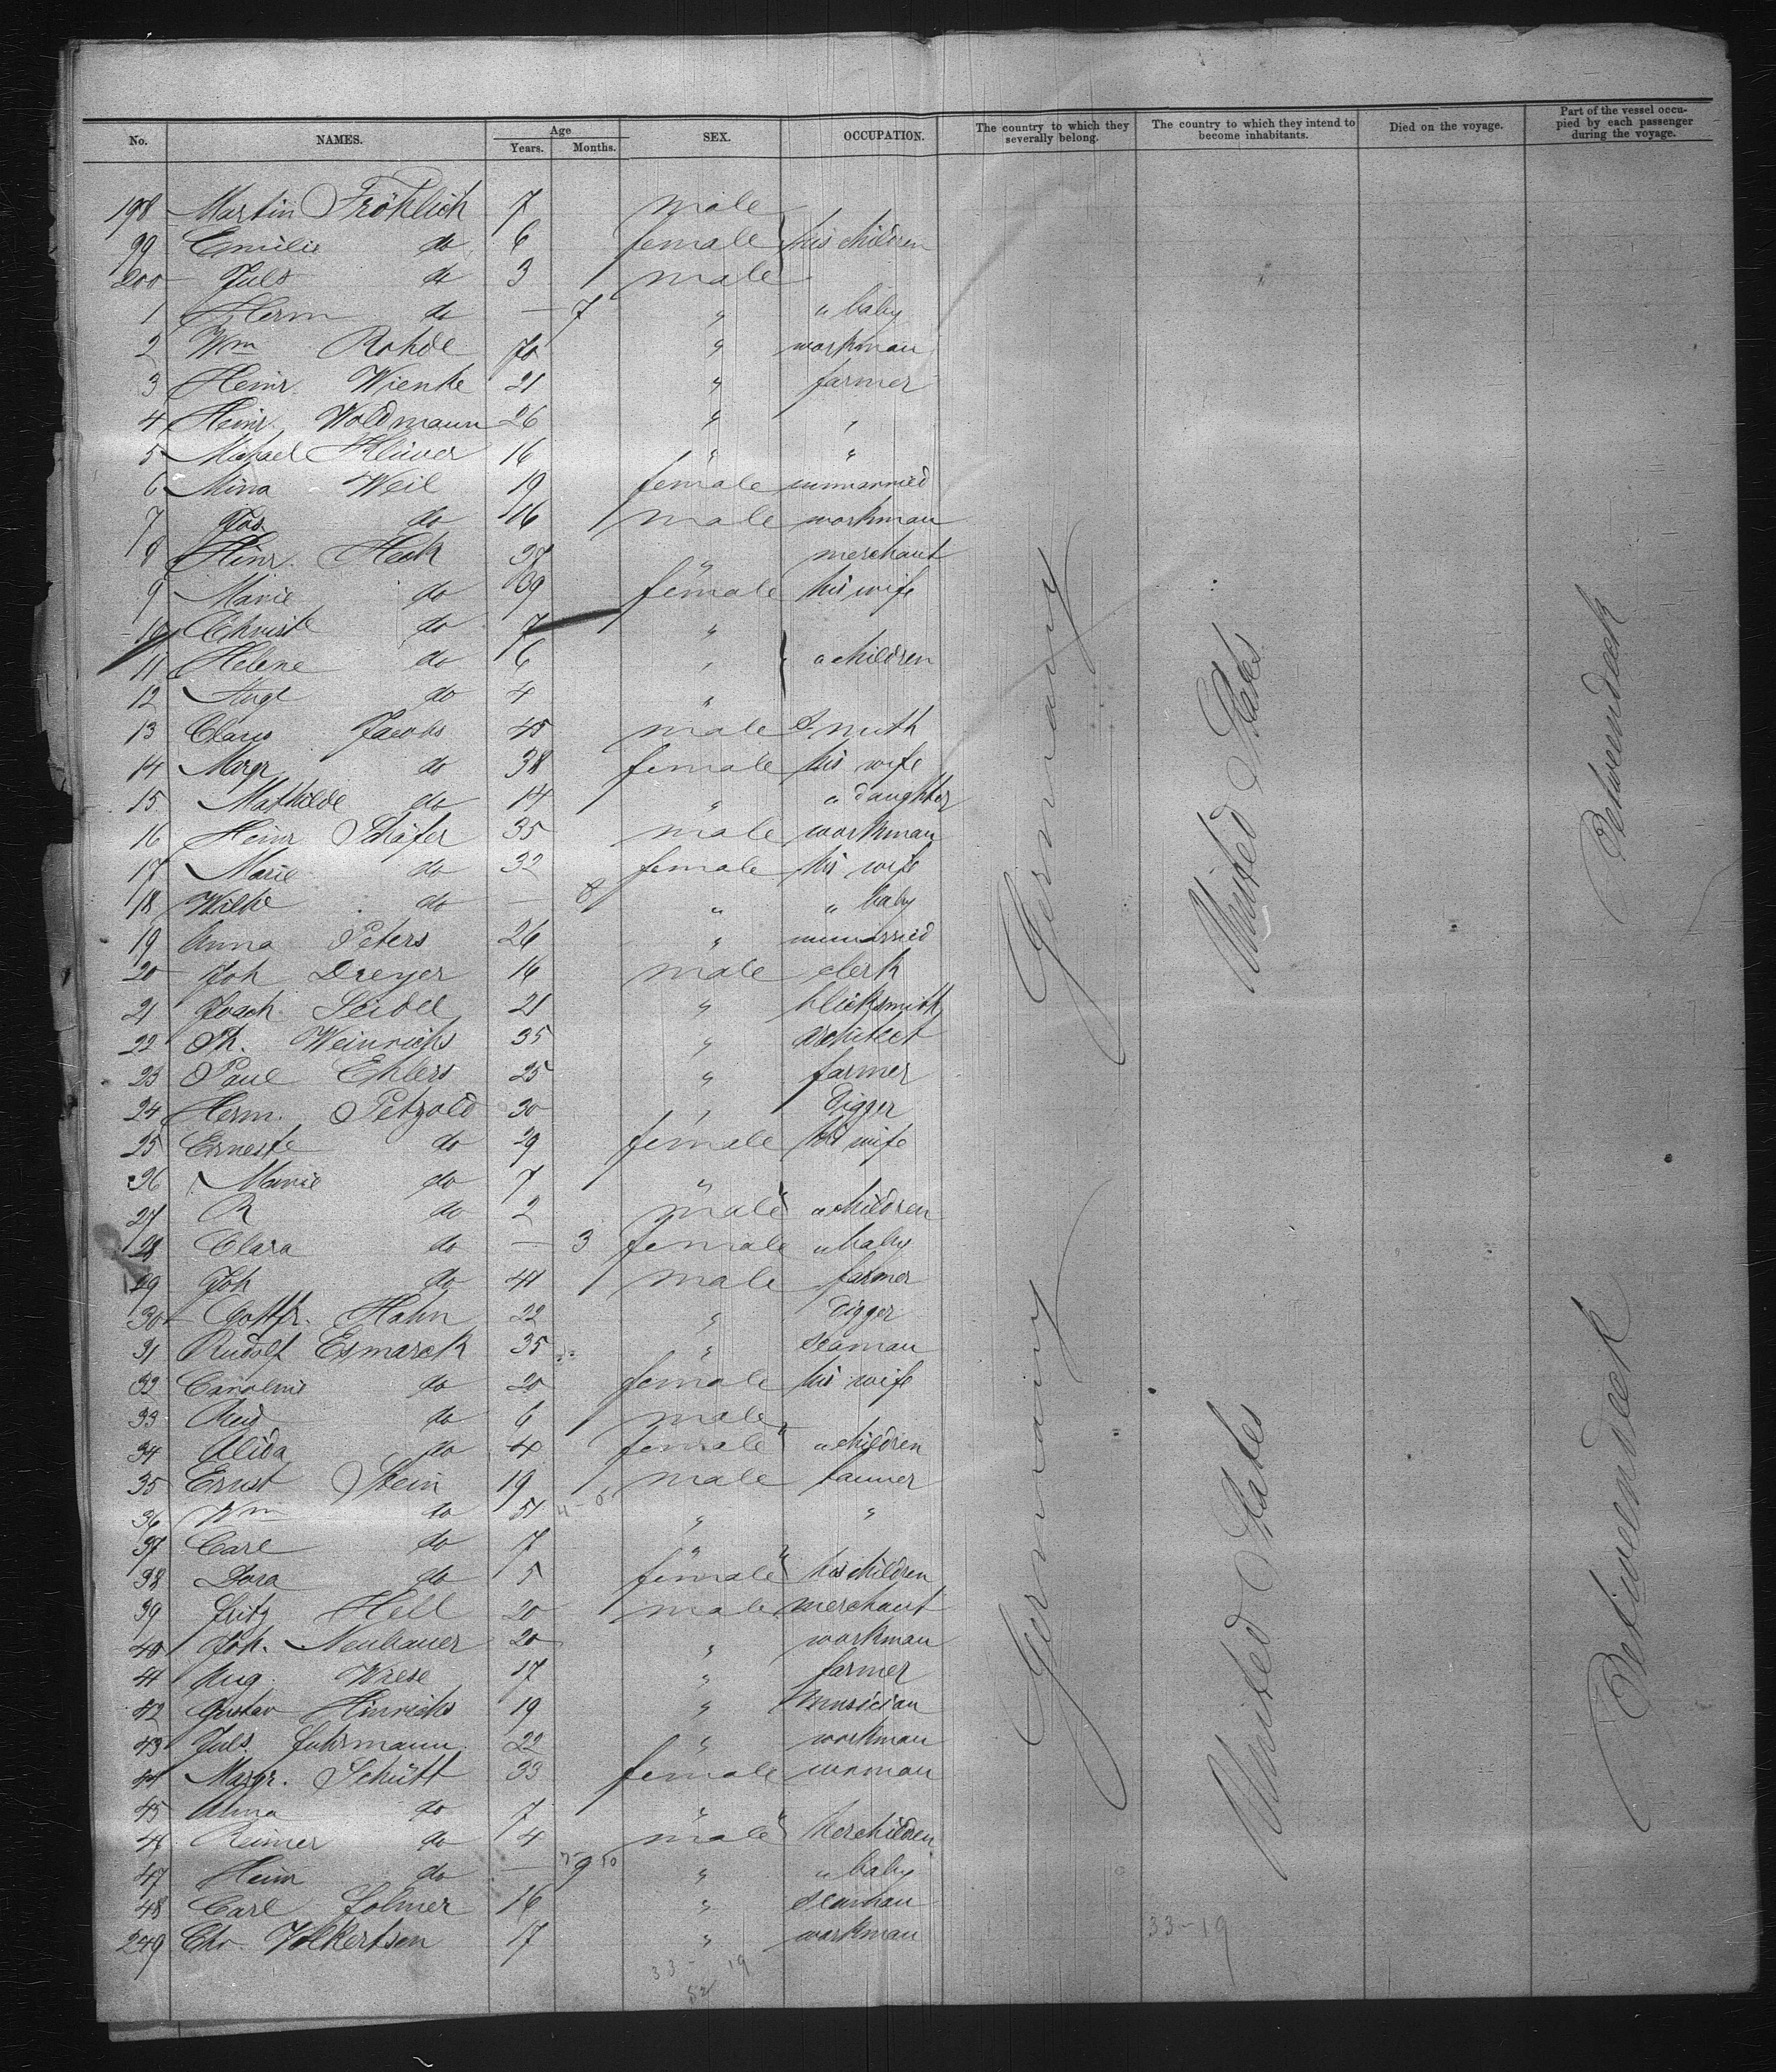 No. NAMES. Age Years. Months. SEX. OCCUPATION. The country to which they severally belong. The country to which they intend to become inhabitants. Died on the voyage. Part of the vessel occupied by each passenger during the voyage.
198 Martin Fröhlich 7 male
99 Emilie do 6 female his children
200 Juls do 3 male
1 Herm do — 7 " " baby
2 Wm Rohde 70 " workman
3 Heinr. Wienke 21 " farmer
4 Heinr. Woldmann 26 " "
5 Michael Klüver 16 " "
6 Mina Weil 19 female unmarried
7 Jos. do 16 male workman
8 Hinr. Heck 37 " merchant
9 Marie do 39 female his wife
10 Christ do 7 "
11 Helene do 6 " " children
12 Augt do 4 "
13 Claus Jacobs 45 male Smith
14 Margr do 38 female his wife
15 Mathilde do 14 " " daughter
16 Heinr Schäfer 35 male workman
17 Marie do 32 female his wife
18 Wilhe do — 8 " " baby
19 Anna Peters 26 " unmarried
20 Joh Dreyer 16 male clerk
21 Joach. Seidel 21 " blicksmith
22 Th. Weinrichs 35 " architect
23 Paul Ehlers 25 " farmer
24 Herm. Petzold 30 " digger
25 Erneste do 29 female his wife
26 Marie do 7 "
27 R do 2 male " children
28 Clara do — 3 female " baby
29 Joh do 41 male farmer
30 Gottfr. Hahn 22 " digger
31 Rudolf Esmarck 35 " seaman
32 Caroline do 20 female his wife
33 Rud do 6 male
34 Alida do 4 female " children
35 Ernst Stein 19 male tanner
36 Wm do 51 " "
37 Carl do 7 "
38 Dora do 5 female his children
39 Fritz Hell 20 male merchant
40 Joh. Neubauer 20 " workman
41 Aug. Wiese 17 " farmer
42 Gustav Hinrichs 19 " musician
43 Juls. Fuhrmann 22 " workman
44 Margr. Schütt 33 female woman
45 Alma do 7 "
46 Reimer do 4 male her children
47 Heinr do — 9 " " baby
48 Carl Folmer 16 " seaman
249 Chr. Volkertsen 17 " workman
Germany
United States
Betweendeck
Germany
United States
Betweendeck
33-19
33- 19
52